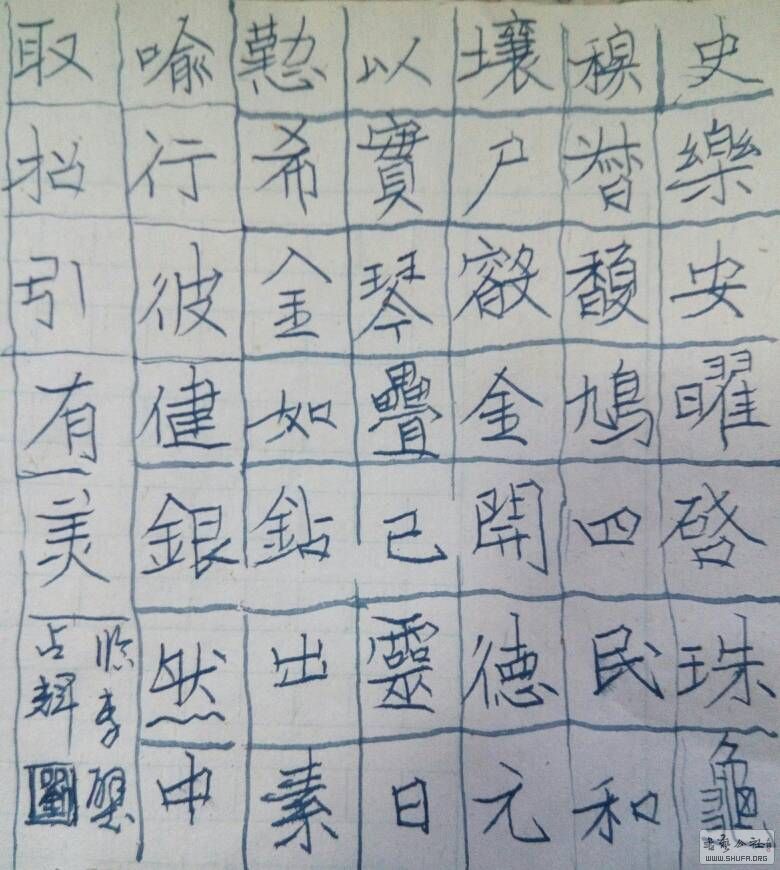 史樂安曜啓珠龜
穆馥鳩四民和
壤户金開德元
以實琴疊己靈日
懃希金如鉆出素
喻行彼健銀然中
取招引有美
临李璧
占輝
WWW.SHUFA.ORG